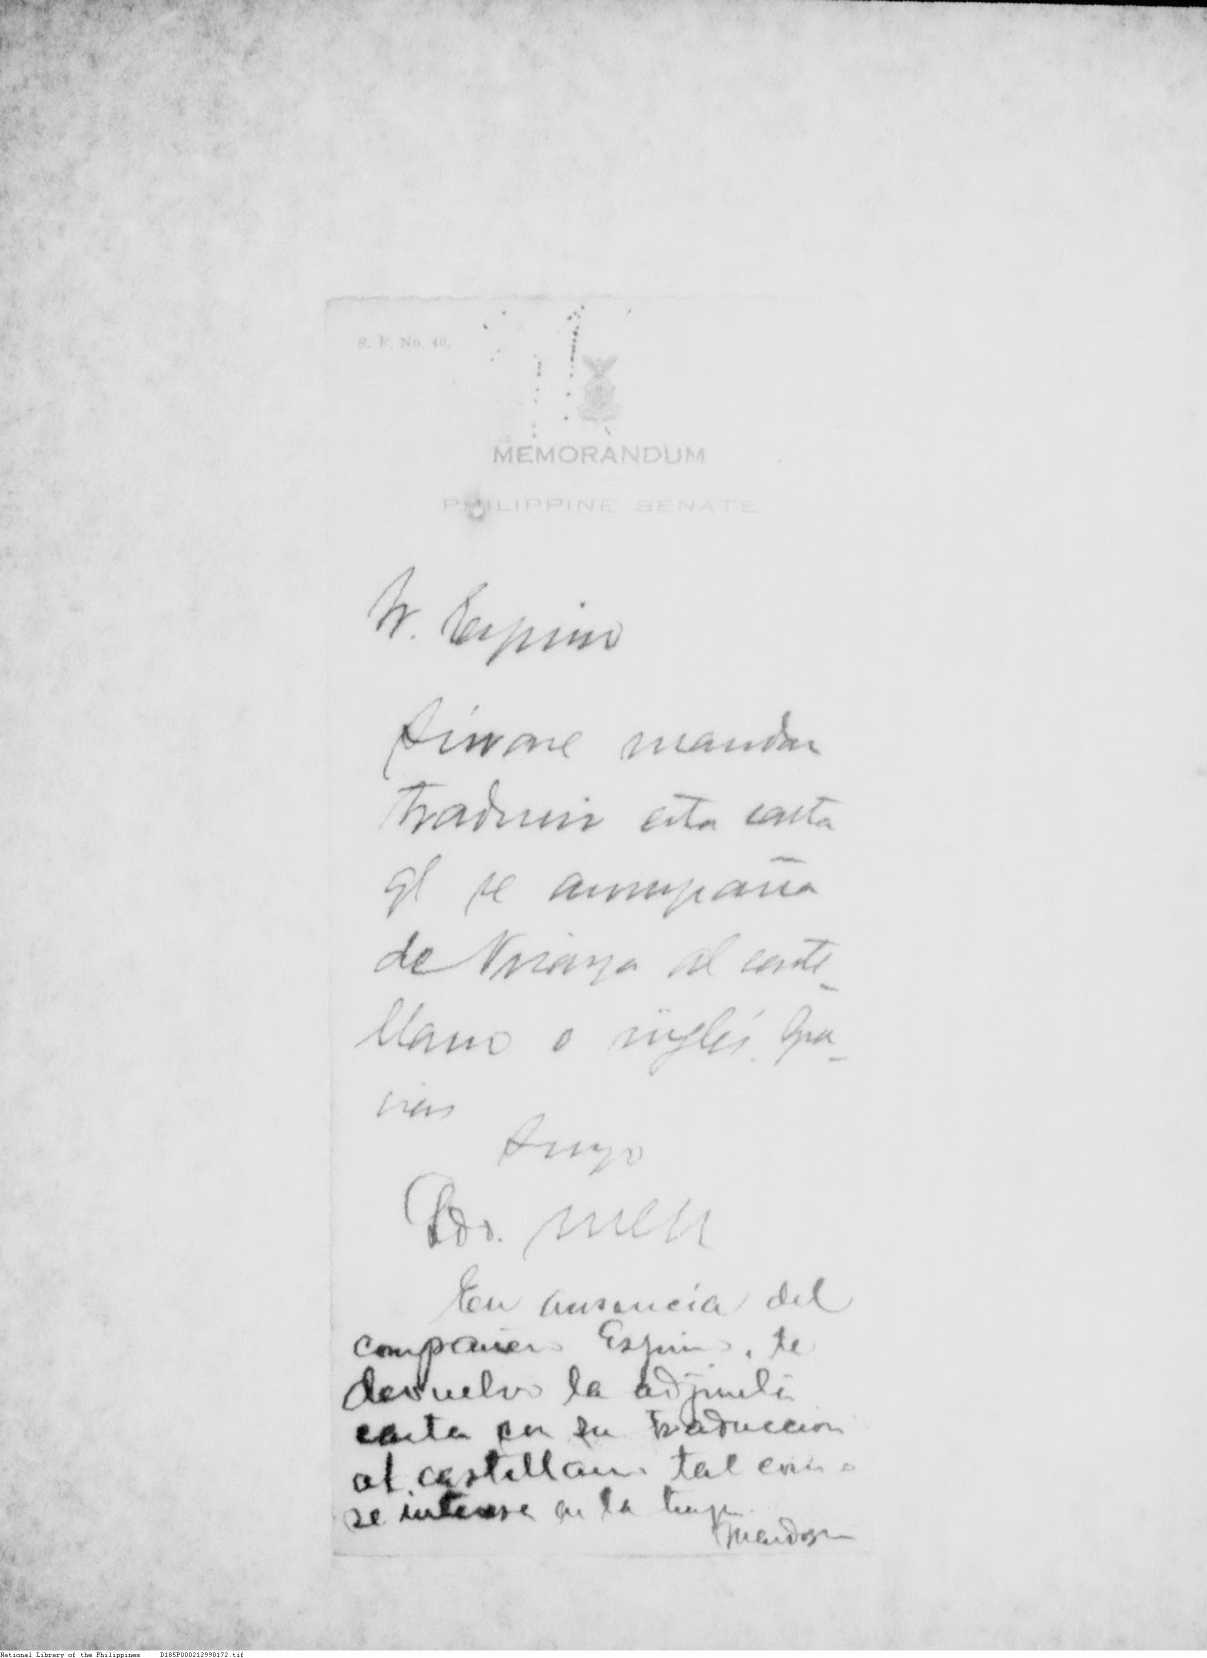 S. F. No. 40.
MEMORANDUM
PHILIPPINE SENATE
Sr. Espino
Sírvase mandar
traducir esta carta
qe se acompaña
de Visaya al caste-
llano o inglés. Gra-
cias
Suyo
Pdo.
En ausencia del
compañero Espino, te
devuelvo la adjunta
carta con su traduccion
al castellano tal como
se interesa en la
Mendoza
National Library of the Philippines D185P000212998172.tif